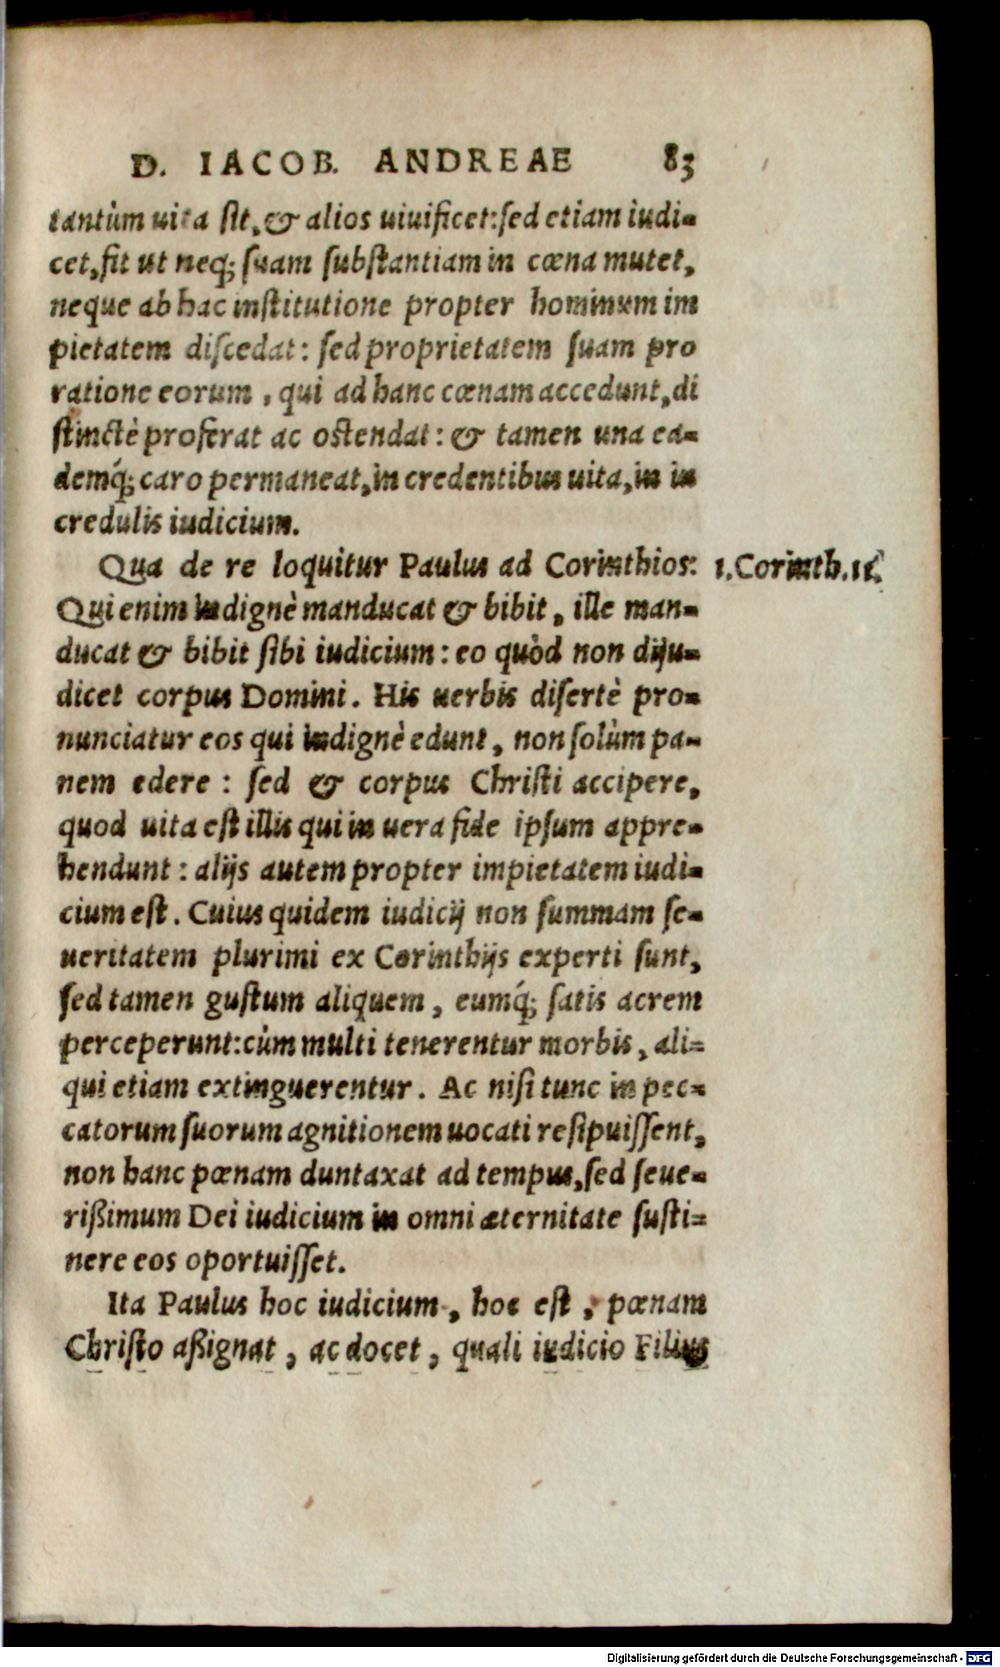 D. IACOB. ANDREAE 83
tantùm uita ſit, & alios uiuificet: ſed etiam iudi-
cet, fit ut neq; ſuam ſubſtantiam in cœna mutet,
neque ab hac inſtitutione propter hominum im
pietatem diſcedat: ſed proprietatem ſuam pro
ratione eorum, qui ad hanc cœnam accedunt, di
ſtinctè proferat ac oſtendat: & tamen una ea-
demq́; caro permaneat, in credentibus uita, in in
credulis iudicium.
Qua de re loquitur Paulus ad Corinthios: 1. Corinth. 11.
Qui enim indignè manducat & bibit, ille man-
ducat & bibit ſibi iudicium: eo quòd non dìju-
dicet corpus Domini. His uerbis diſertè pro-
nunciatur eos qui indignè edunt, non ſolùm pa-
nem edere: ſed & corpus Chriſti accipere,
quod uita eſt illis qui in uera fide ipſum appre-
hendunt: alijs autem propter impietatem iudi-
cium eſt. Cuius quidem iudicij non ſummam ſe-
ueritatem plurimi ex Corinthijs experti ſunt,
ſed tamen guſtum aliquem, eumq́; ſatis acrem
perceperunt: cùm multi tenerentur morbis, ali-
qui etiam extinguerentur. Ac niſi tunc in pec-
catorum ſuorum agnitionem uocati reſipuiſſent,
non hanc pœnam duntaxat ad tempus, ſed ſeue-
rißimum Dei iudicium in omni æternitate ſuſti-
nere eos oportuiſſet.
Ita Paulus hoc iudicium, hoc eſt, pœnam
Chriſto aßignat, ac docet, quali iudicio Filius
Digitalisierung gefördert durch die Deutsche Forschungsgemeinschaft - DFG